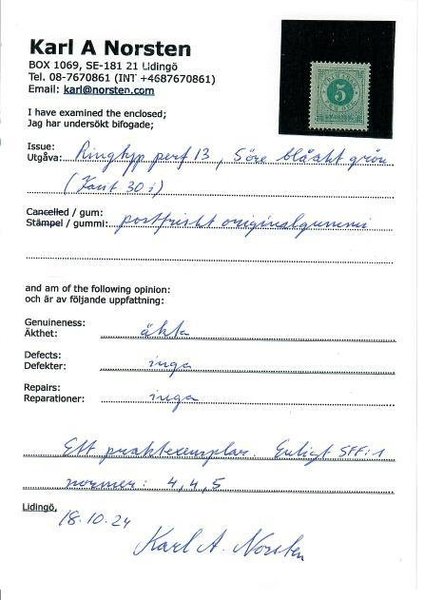 Karl A Norsten
BOX 1069, SE-181 21 Lidingö
Tel. 08-7670861 (INT +4687670861)
Email: karl@norsten.com
5
I have examined the enclosed;
Jag har undersökt bifogade;
Issue:
Utgåva: Ringtyp perf 13, 5 öre blåakt grön
(Facit 30 i)
Cancelled / gum:
Stämpel / gummi: postfriskt originalgummi
and am of the following opinion:
och är av följande uppfattning:
Genuineness:
Äkthet: äkta
Defects:
Defekter: inga
Repairs:
Reparationer: inga
Ett praktexemplar. Enligt SFF:s
normer: 4,4,5
Lidingö, 18.10.24
Karl A. Norsten